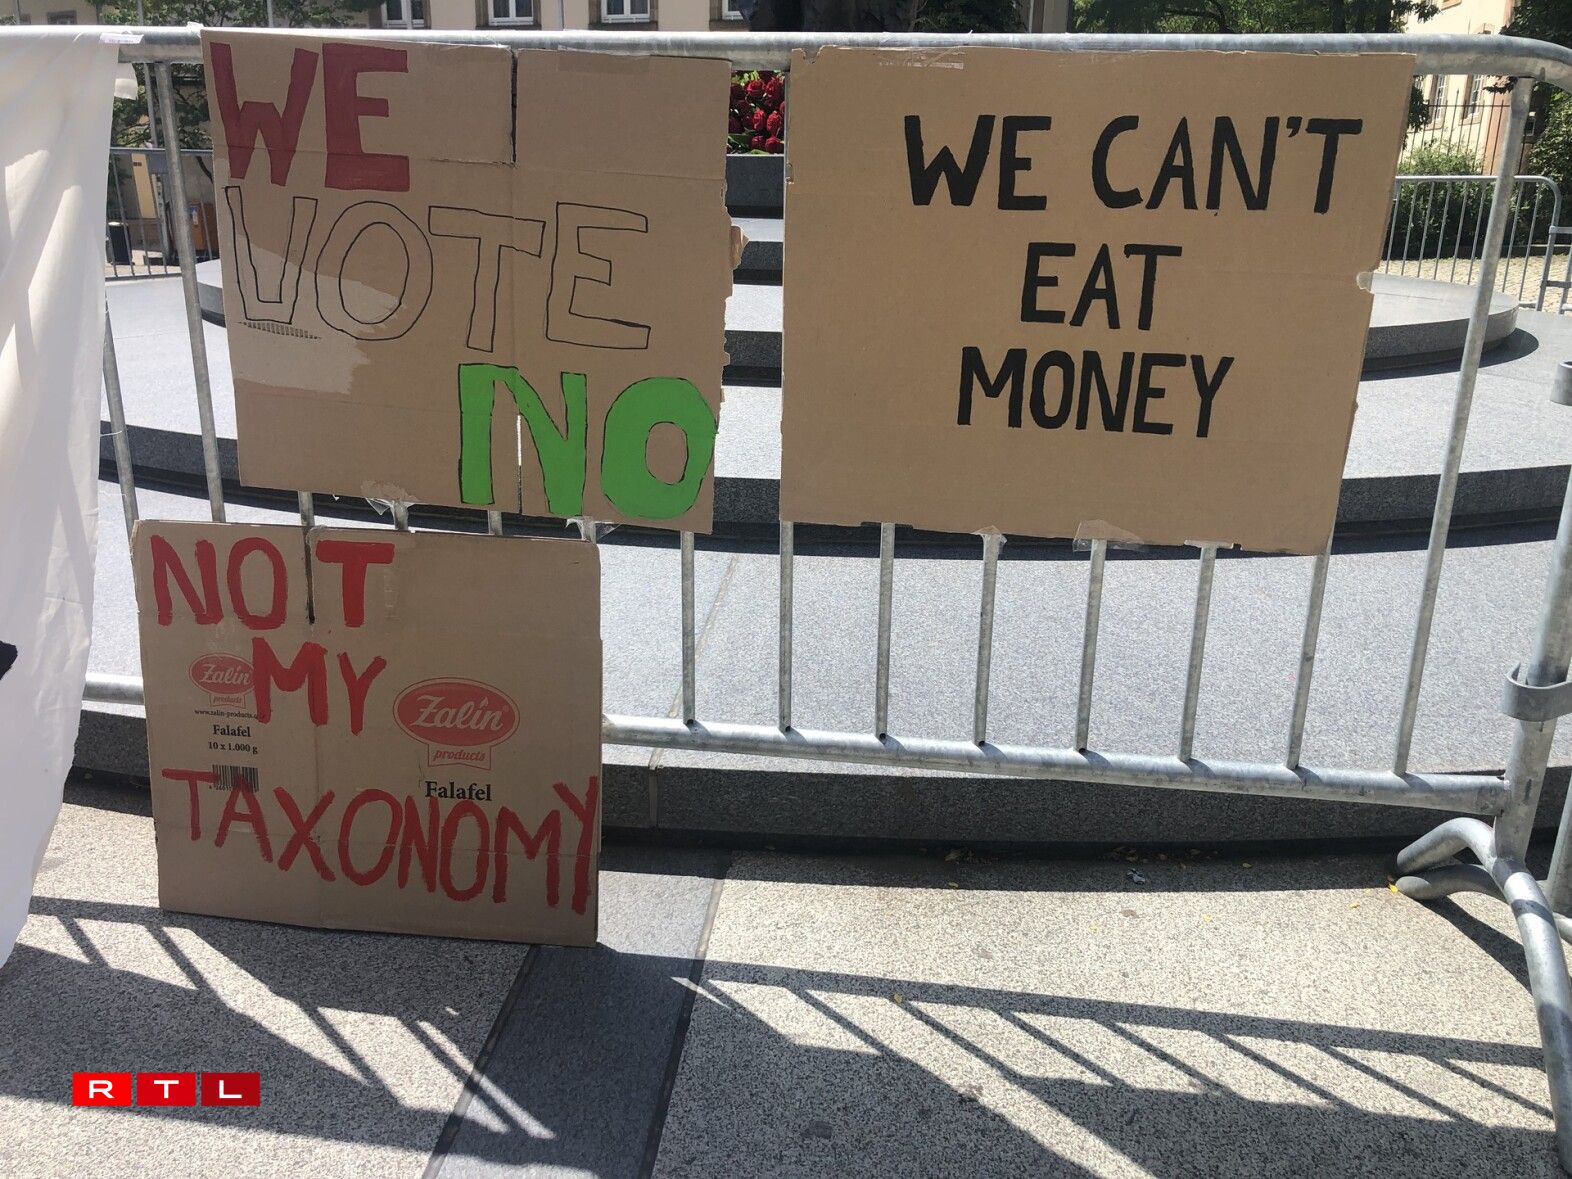 WE
VOTE
NO
WE CAN'T
EAT
MONEY
NOT
MY
TAXONOMY
Zalin
products
Falafel
10 x 1.000 g
Zalin
products
Falafel
RTL